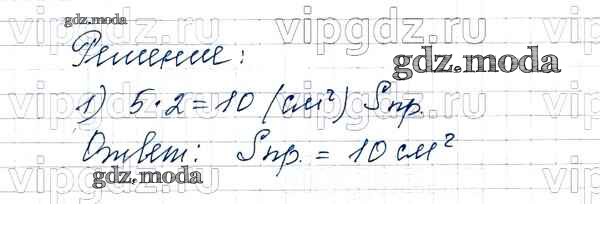 gdz.moda
vipgdz.ru vipgdz.ru
Решение:
gdz.moda
1) 5·2=10 (см²) Sпр.
vipgdz.ru vipgdz.ru
Ответ: Sпр. = 10 см²
gdz.moda
vipgdz.ru vipgdz.ru